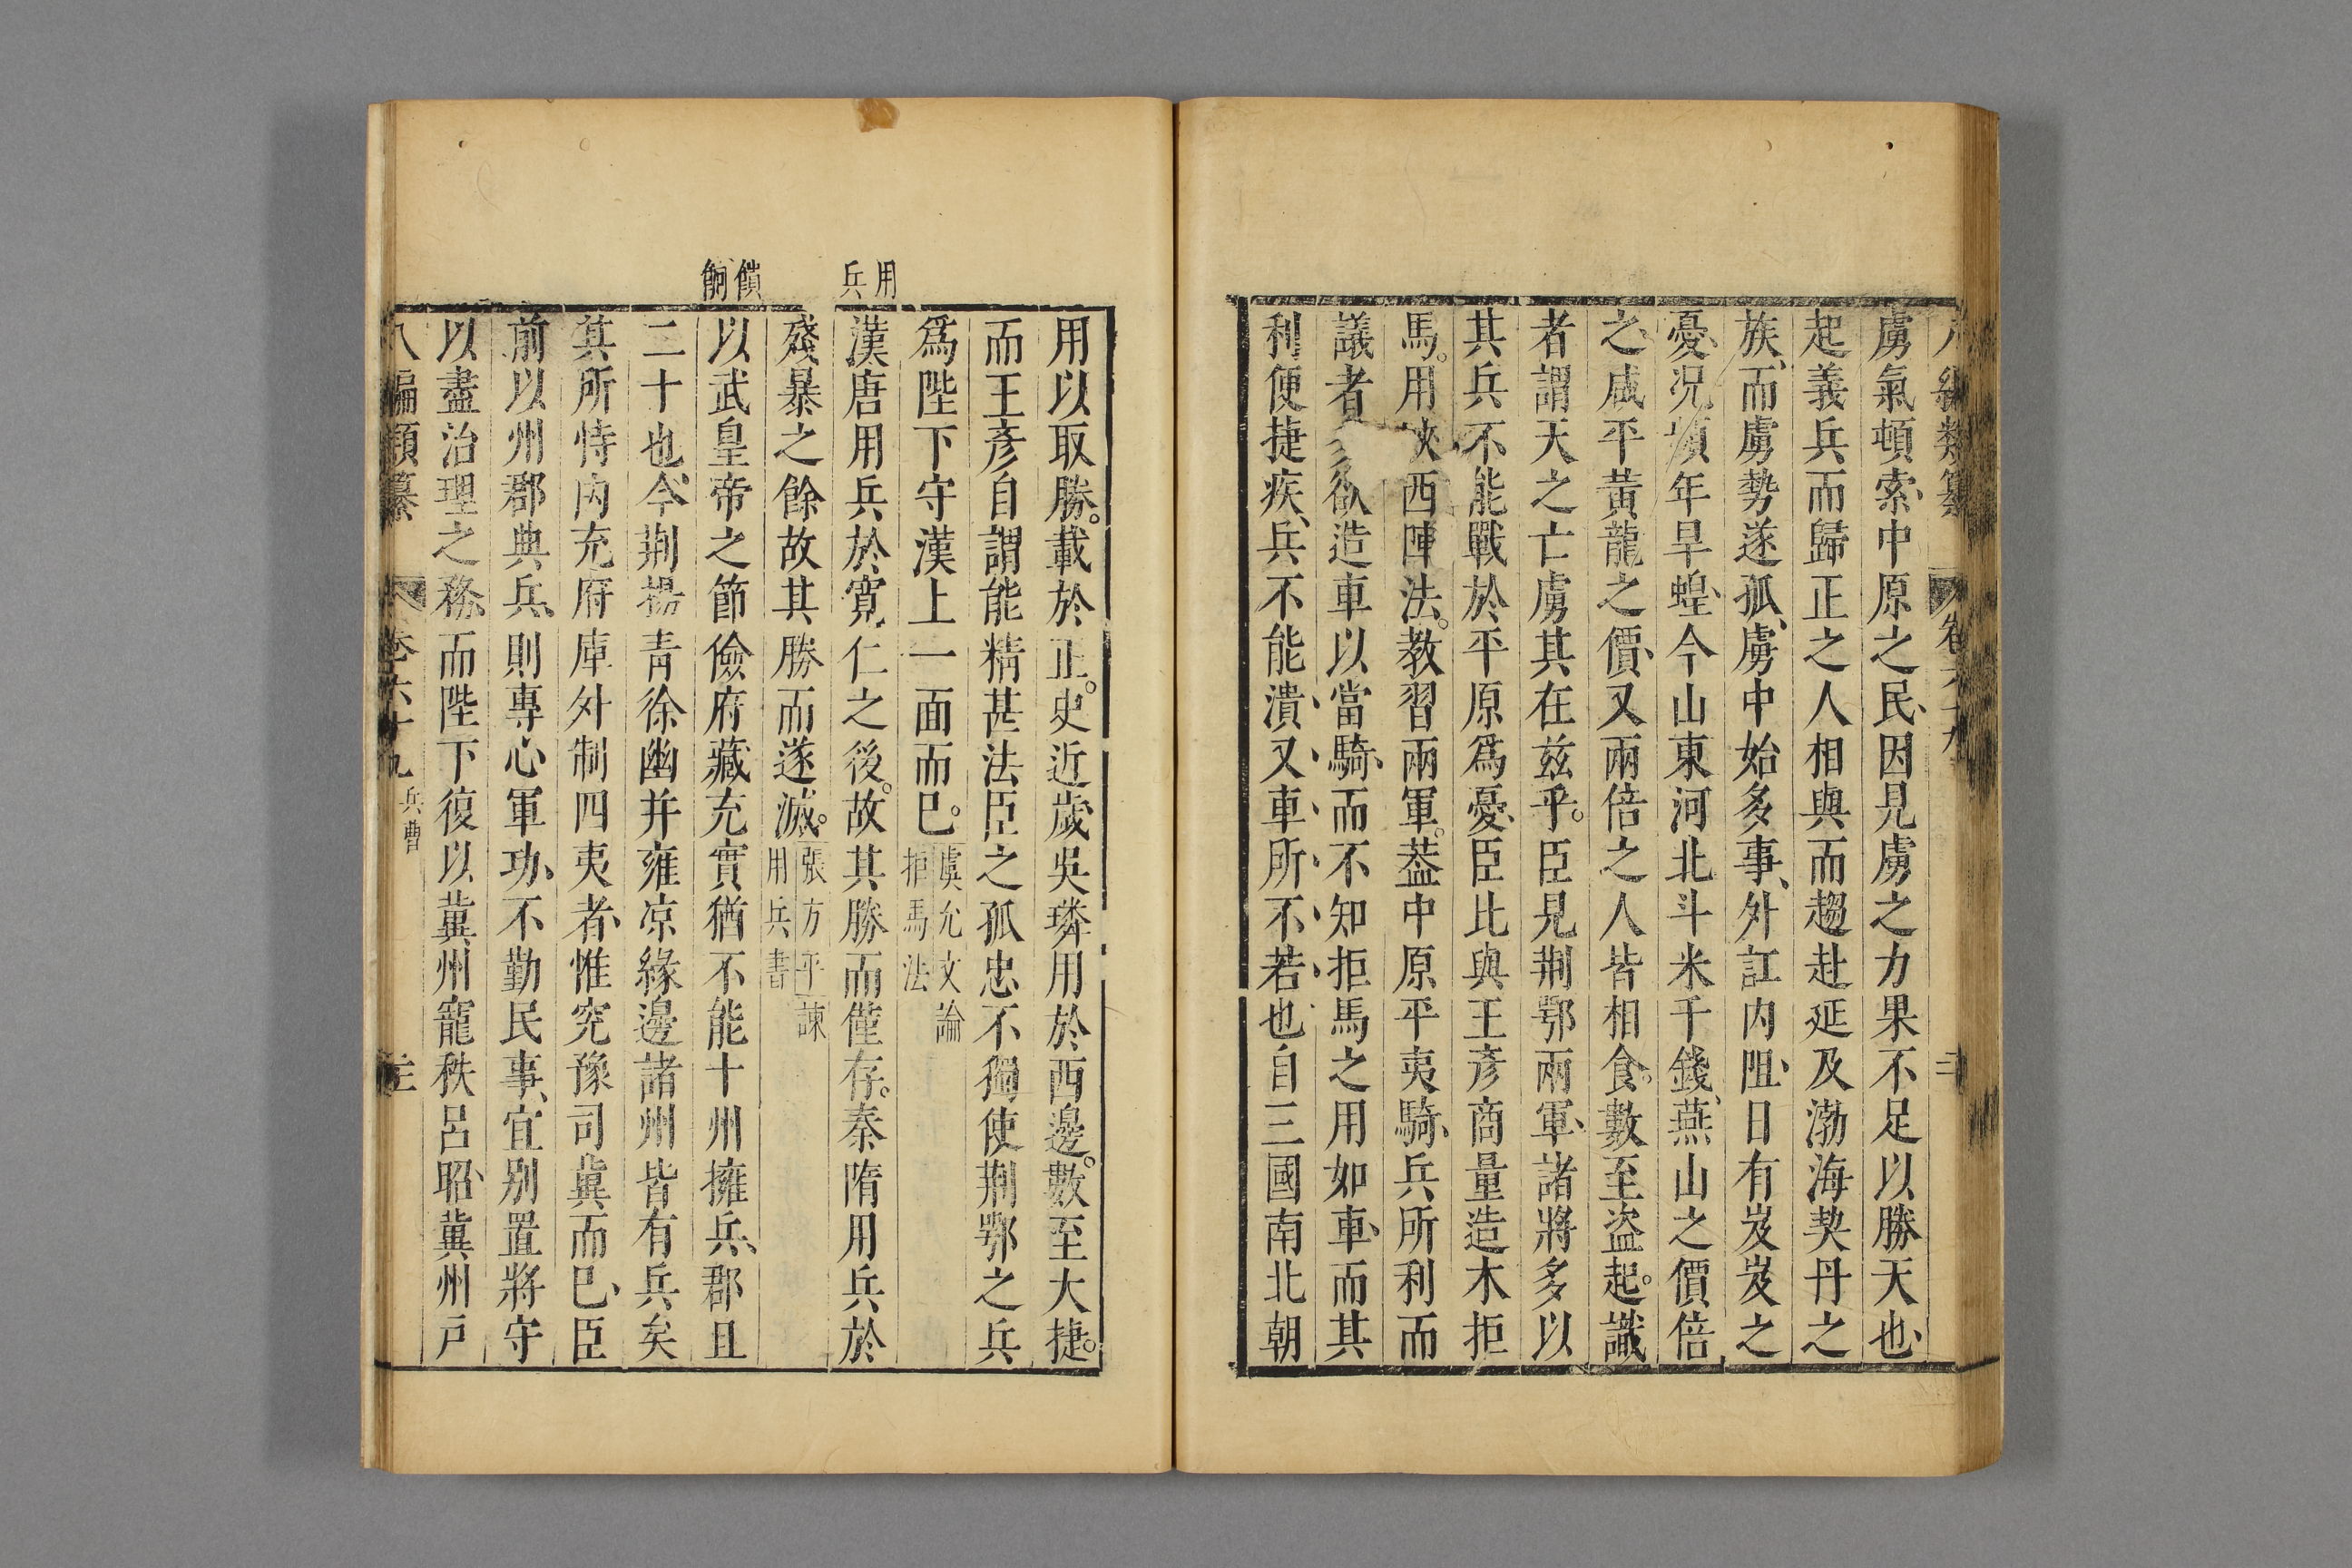 虜氣頓索、中原之民、因見虜之力果不足以勝天也、
起義兵而歸正之人相與而趨赴延及渤海契丹之
族、而虜勢遂孤、虜中始多事、外訌内阻、日有岌岌之
憂、況頃年旱蝗、今山東河北斗米千錢、燕山之價倍
之、咸平黃龍之價、又兩倍之人皆相食。數至盜起。識
者謂天之亡虜其在兹乎。臣見荆鄂兩軍、諸將多以
其兵不能戰於平原爲憂、臣比與王彦商量造木拒
馬。用陝西陣法。教習兩軍。葢中原平夷騎、兵所利而
議者多欲造車以當騎、而不知拒馬之用如車、而其
利便捷疾、兵不能潰、又、車、所、不、若、也自三國南北朝
用以取勝。載於正。史近歲吳璘用於西邊。數至大捷。
而王彦自謂能精甚法臣之孤忠不獨使荆鄂之兵
爲陛下守漢上一面而巳。
虞允文論
拒馬法
用兵
漢唐用兵於寛仁之後。故其勝而僅存。秦隋用兵於
殘暴之餘故其勝而遂滅。
張方平諫
用兵書
饋餉
以武皇帝之節儉府藏充實猶不能十州擁兵、郡且
二十也、今荆揚青徐幽并雍凉緣邊諸州皆有兵矣
其所恃内充府庫外制四夷者、惟兖豫司冀而巳、臣
前以州郡典兵、則專心軍功、不勤民事、宜别置將守
以盡治理之務、而陛下復以冀州寵秩呂昭、冀州戸
八編類纂
卷六十九
兵曹